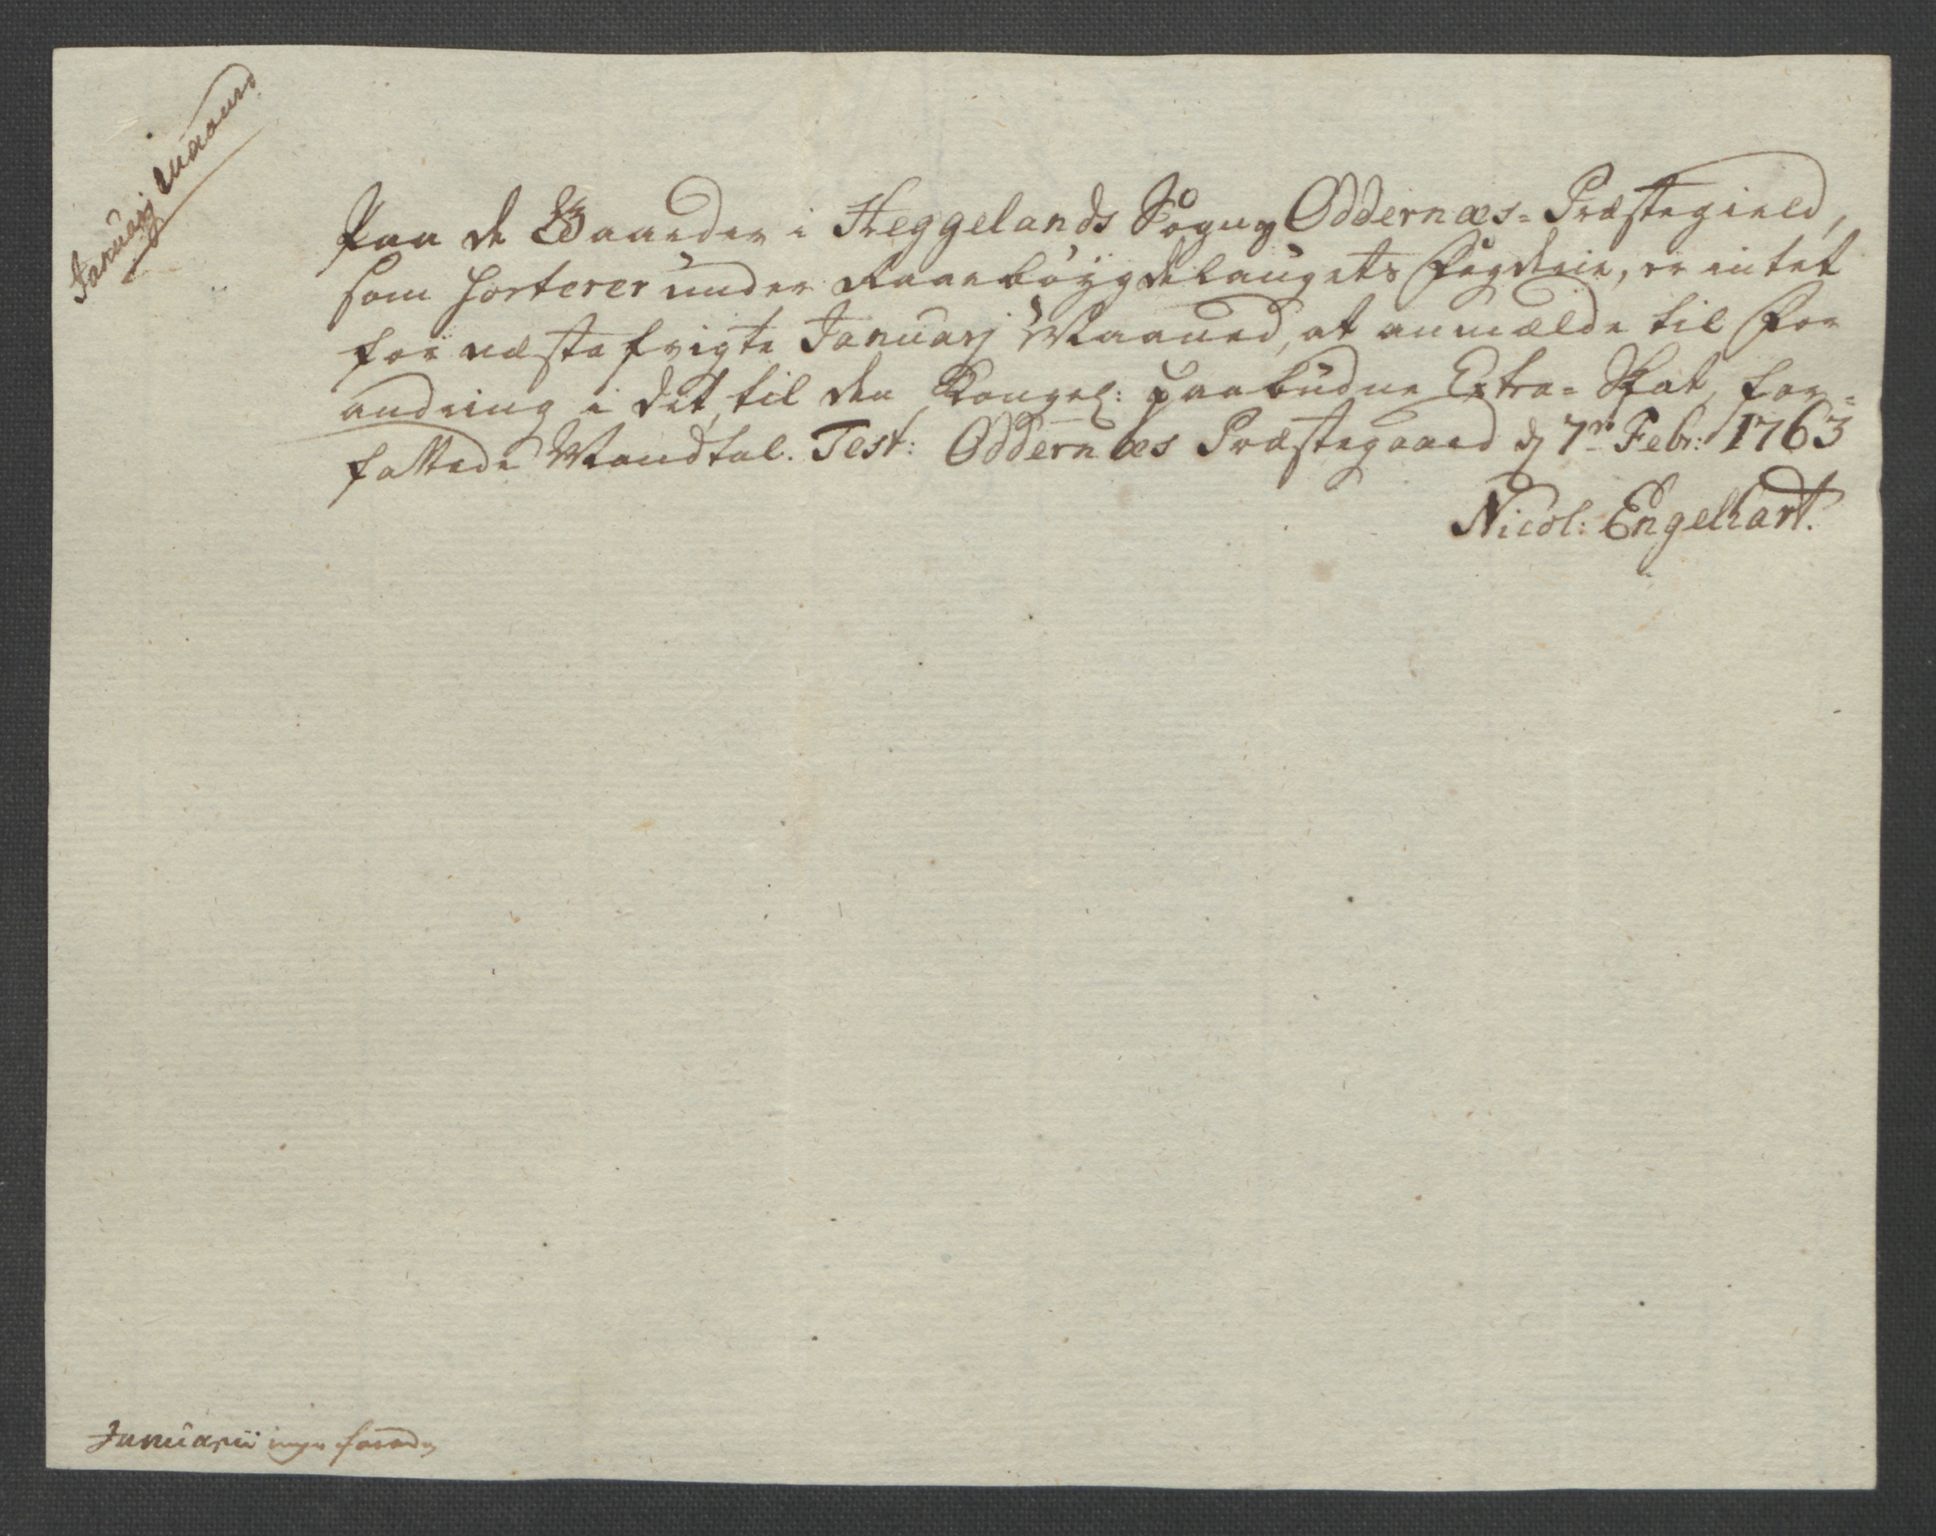 Januarj Maaned
Paa de Gaarder i Heggelands Sogn, Oddernæs-Præstegield,
som sorterer under Raabøygdelaugets Fogderie, er intet
for næstafvigte Januarj Maaned, at anmælde til For
andring i det, til den Kongel: paabudne Extra-Skat, for-
fattede Mandtal. Test: Oddernæs Præstegaard d 7de Febr: 1763
Nicol: Engelhart.
Januarii ingen forandr